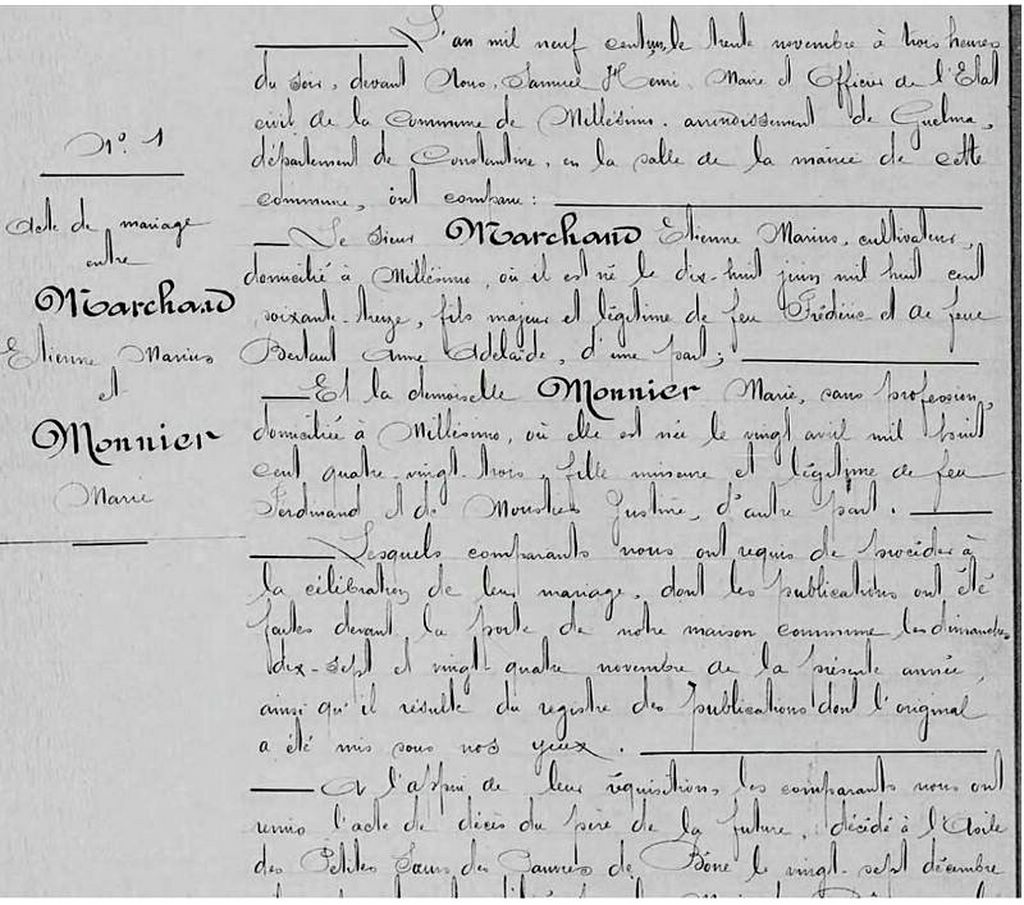 N° 1
Acte de mariage
entre
Marchand
Etienne Marius
et
Monnier
Marie
L'an mil neuf cent un, le trente novembre à trois heures
du soir, devant Nous, Samuel Henri, Maire et Officier de l'Etat
civil de la Commune de Millésimo, arrondissement de Guelma,
département de Constantine, en la salle de la mairie de cette
commune, ont comparu :
Le sieur Marchand Etienne Marius, cultivateur,
domicilié à Millésimo, où il est né le dix-huit juin mil huit cent
soixante-treize, fils majeur et légitime de feu Frédéric et de feue
Bertaut Anne Adelaïde, d'une part ;
Et la demoiselle Monnier Marie, sans profession,
domiciliée à Millésimo, où elle est née le vingt avril mil huit
cent quatre-vingt-trois, fille mineure et légitime de feu
Ferdinand et de Justine, d'autre part.
Lesquels comparants nous ont requis de procéder à
la célébration de leur mariage, dont les publications ont été
faites devant la porte de notre maison commune les dimanches
dix-sept et vingt-quatre novembre de la présente année,
ainsi qu'il résulte du registre des publications dont l'original
a été mis sous nos yeux.
A l'appui de leur réquisition, les comparants nous ont
remis l'acte de décès du père de la future, décédé à l'Asile
des Petites Sœurs des Pauvres de Bône le vingt-sept décembre